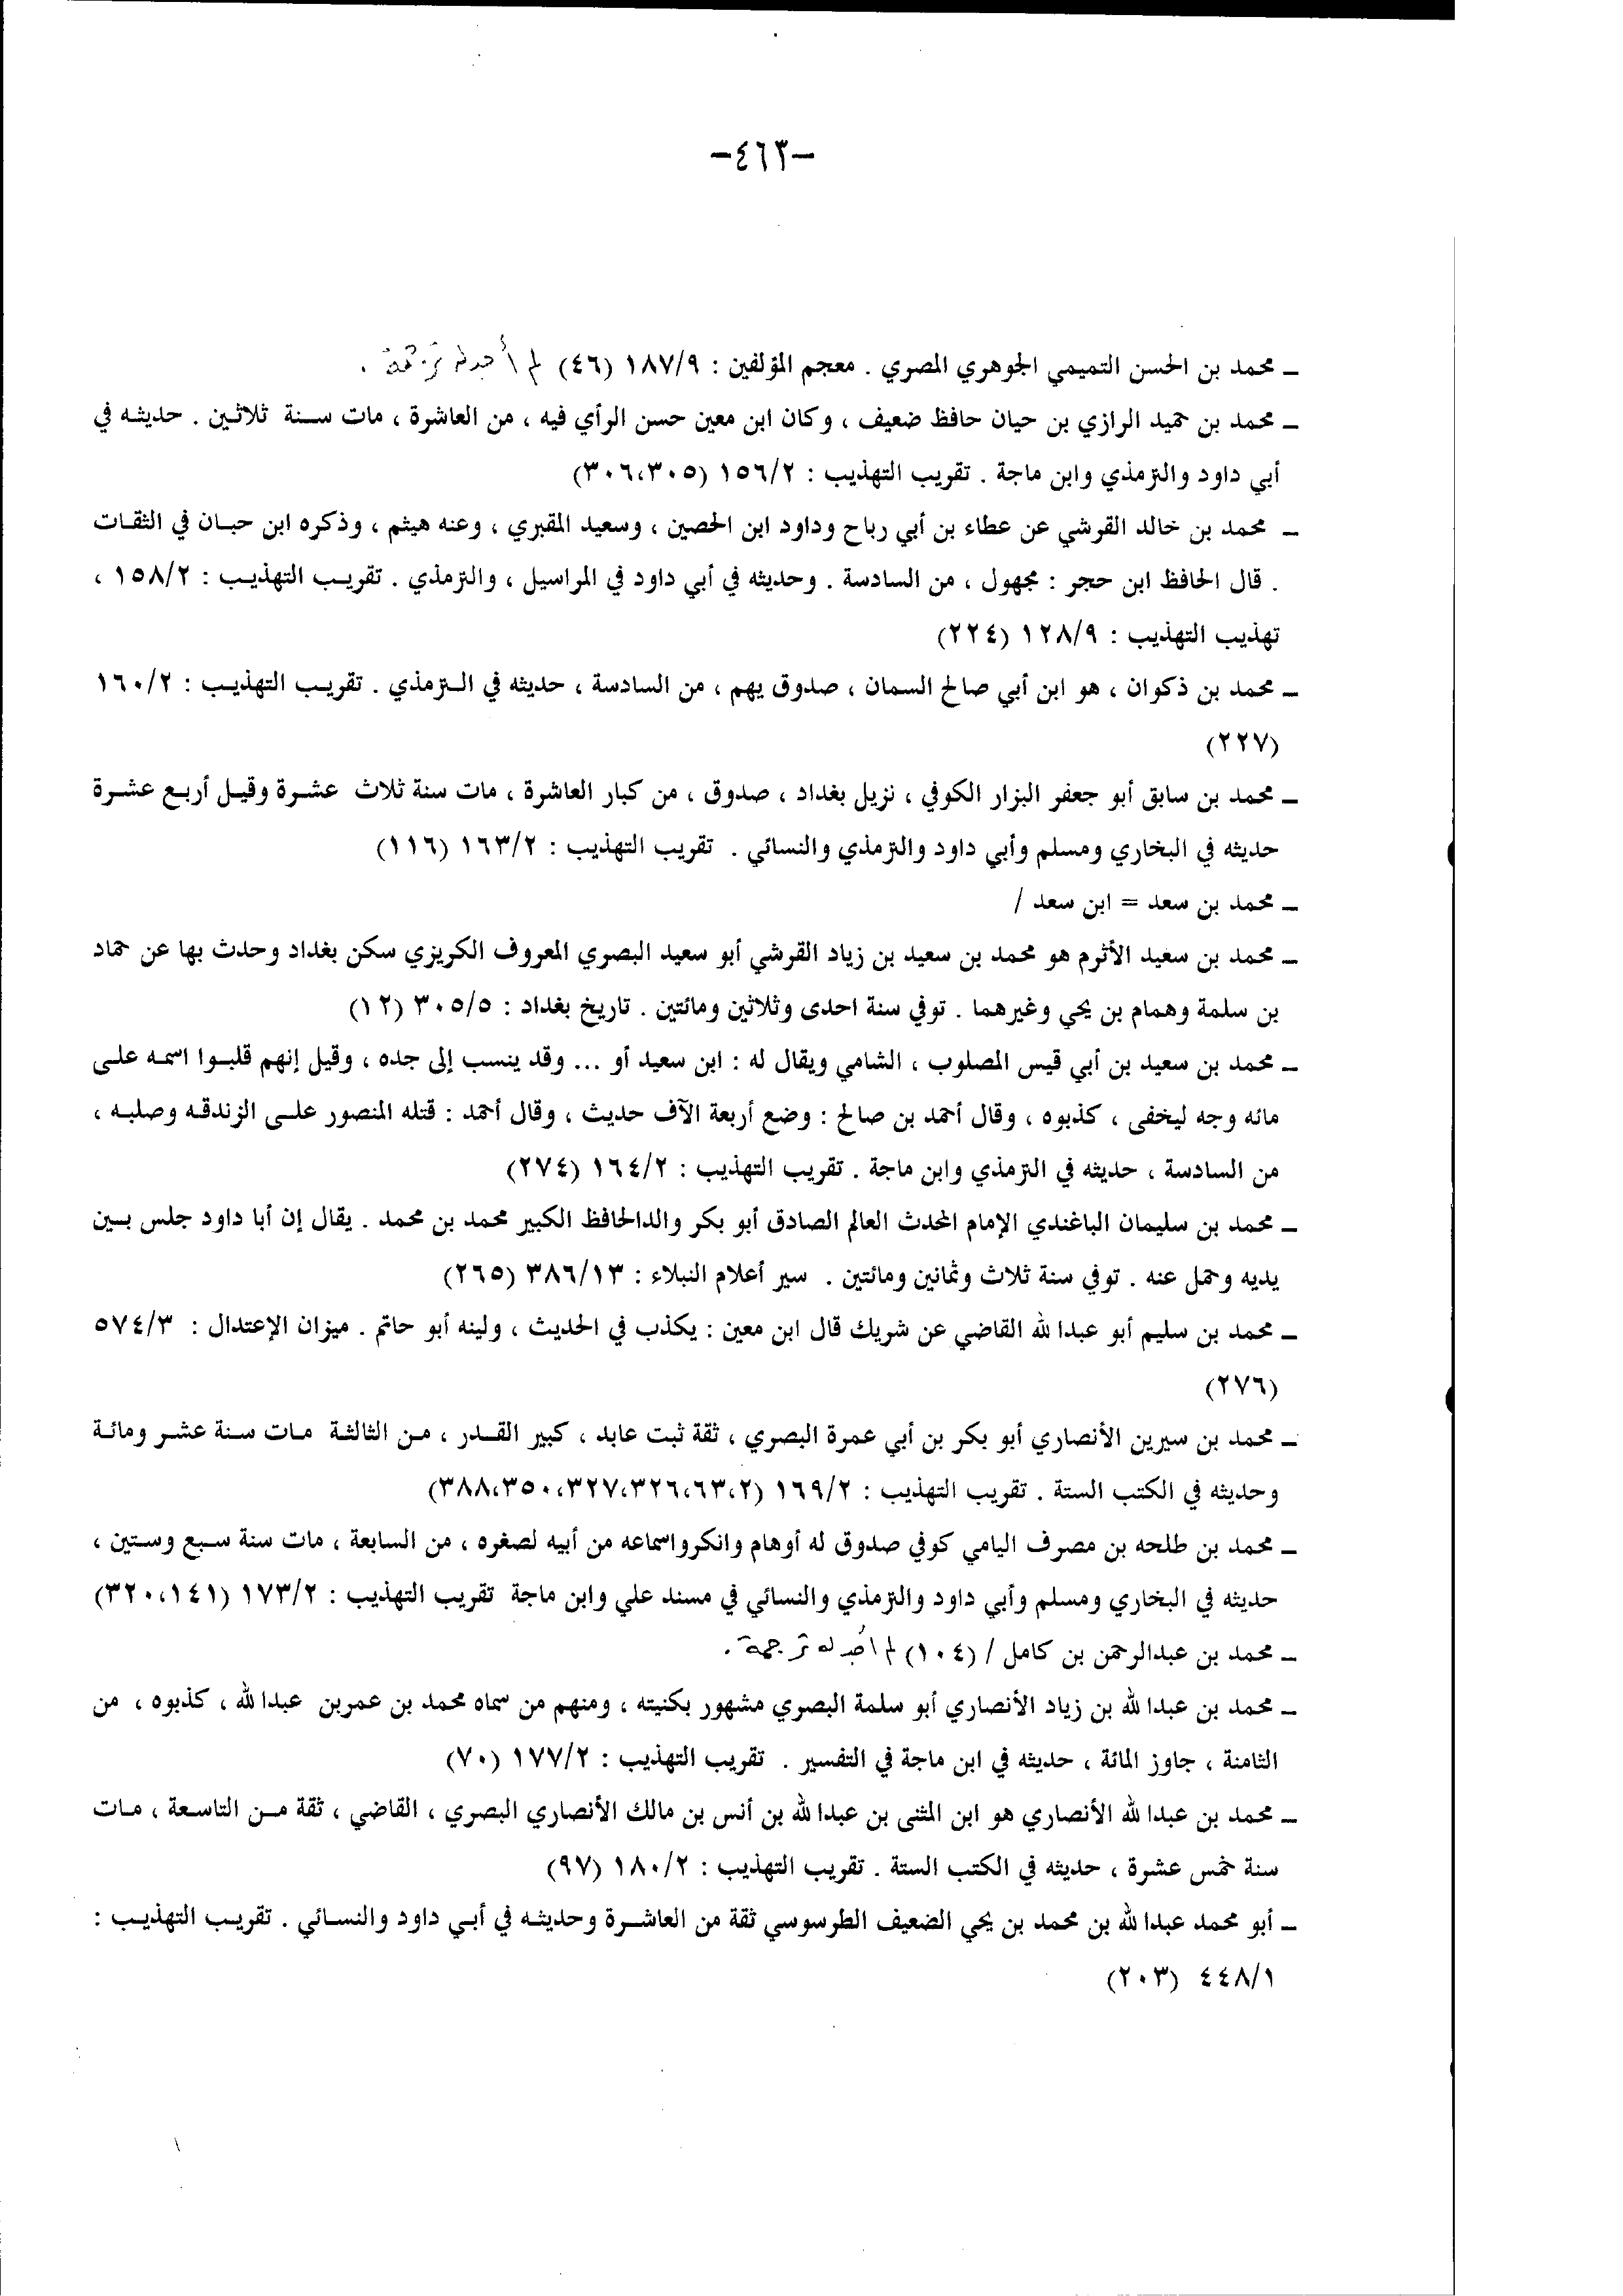 -٤٦٣-
ـ محمد بن الحسن التميمي الجوهري المصري . معجم المؤلفين : ١٨٧/٩ (٤٦) لم أجد له ترجمة .
ـ محمد بن حميد الرازي بن حيان حافظ ضعيف ، وكان ابن معين حسن الرأي فيه ، من العاشرة ، مات سنة ثلاثين . حديثه في
أبي داود والترمذي وابن ماجة . تقريب التهذيب : ١٥٦/٢ (٣٠٦،٣٠٥)
ـ محمد بن خالد القرشي عن عطاء بن أبي رباح وداود ابن الحصين ، وسعيد المقبري ، وعنه هيثم ، وذكره ابن حبان في الثقات
. قال الحافظ ابن حجر : مجهول ، من السادسة . وحديثه في أبي داود في المراسيل ، والترمذي . تقريب التهذيب : ١٥٨/٢ ،
تهذيب التهذيب : ١٢٨/٩ (٢٢٤)
ـ محمد بن ذكوان ، هو ابن أبي صالح السمان ، صدوق يهم ، من السادسة ، حديثه في الترمذي . تقريب التهذيب : ١٦٠/٢
(٢٢٧)
ـ محمد بن سابق أبو جعفر البزار الكوفي ، نزيل بغداد ، صدوق ، من كبار العاشرة ، مات سنة ثلاث عشرة وقيل أربع عشرة
حديثه في البخاري ومسلم وأبي داود والترمذي والنسائي . تقريب التهذيب : ١٦٣/٢ (١١٦)
ـ محمد بن سعد = ابن سعد /
ـ محمد بن سعيد الأثرم هو محمد بن سعيد بن زياد القرشي أبو سعيد البصري المعروف الكريزي سكن بغداد وحدث بها عن حماد
بن سلمة وهمام بن يحي وغيرهما . توفي سنة احدى وثلاثين ومائتين . تاريخ بغداد : ٣٠٥/٥ (١٢)
ـ محمد بن سعيد بن أبي قيس المصلوب ، الشامي ويقال له : ابن سعيد أو ... وقد ينسب إلى جده ، وقيل إنهم قلبوا اسمه على
مائه وجه ليخفى ، كذبوه ، وقال أحمد بن صالح : وضع أربعة الآف حديث ، وقال أحمد : قتله المنصور على الزندقه وصلبه ،
من السادسة ، حديثه في الترمذي وابن ماجة . تقريب التهذيب : ١٦٤/٢ (٢٧٤)
ـ محمد بن سليمان الباغندي الإمام المحدث العالم الصادق أبو بكر والدالحافظ الكبير محمد بن محمد . يقال إن أبا داود جلس بين
يديه وحمل عنه . توفي سنة ثلاث وثمانين ومائتين . سير أعلام النبلاء : ٣٨٦/١٣ (٢٦٥)
ـ محمد بن سليم أبو عبدا لله القاضي عن شريك قال ابن معين : يكذب في الحديث ، ولينه أبو حاتم . ميزان الإعتدال : ٥٧٤/٣
(٢٧٦)
ـ محمد بن سيرين الأنصاري أبو بكر بن أبي عمرة البصري ، ثقة ثبت عابد ، كبير القدر ، من الثالثة مات سنة عشر ومائة
وحديثه في الكتب الستة . تقريب التهذيب : ١٦٩/٢ (٣٨٨،٣٥٠،٣٢٧،٣٢٦،٦٣،٢)
ـ محمد بن طلحه بن مصرف اليامي كوفي صدوق له أوهام وانكرواسماعه من أبيه لصغره ، من السابعة ، مات سنة سبع وستين ،
حديثه في البخاري ومسلم وأبي داود والترمذي والنسائي في مسند علي وابن ماجة تقريب التهذيب : ١٧٣/٢ (٣٢٠،١٤١)
ـ محمد بن عبدالرحمن بن كامل / (١٠٤) لم أجد له ترجمة .
ـ محمد بن عبدا لله بن زياد الأنصاري أبو سلمة البصري مشهور بكنيته ، ومنهم من سماه محمد بن عمربن عبدا لله ، كذبوه ، من
الثامنة ، جاوز المائة ، حديثه في ابن ماجة في التفسير . تقريب التهذيب : ١٧٧/٢ (٧٠)
ـ محمد بن عبدا لله الأنصاري هو ابن المثنى بن عبدا لله بن أنس بن مالك الأنصاري البصري ، القاضي ، ثقة من التاسعة ، مات
سنة خمس عشرة ، حديثه في الكتب الستة . تقريب التهذيب : ١٨٠/٢ (٩٧)
ـ أبو محمد عبدا لله بن محمد بن يحي الضعيف الطرسوسي ثقة من العاشرة وحديثه في أبي داود والنسائي . تقريب التهذيب :
٤٤٨/١ (٢٠٣)